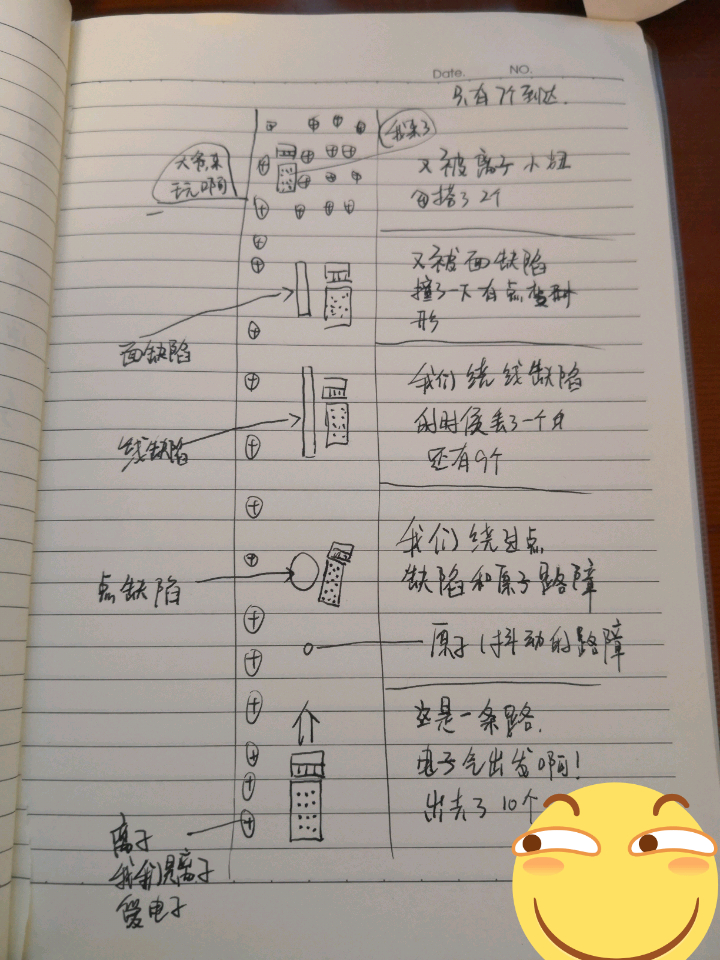 Date. NO.
只有7个到达.
我来了
大爷来
玩啊
又被离子小妞
勾搭了2个
又被面缺陷
撞了一下有点变
形
面缺陷
我们绕线缺陷
的时候丢了一个
还有9个
线缺陷
我们绕过点
缺陷和原子路障
点缺陷
原子(抖动的路障
这是一条路.
电子气出发啊!
出去了10个
离子
我们是离子
爱电子